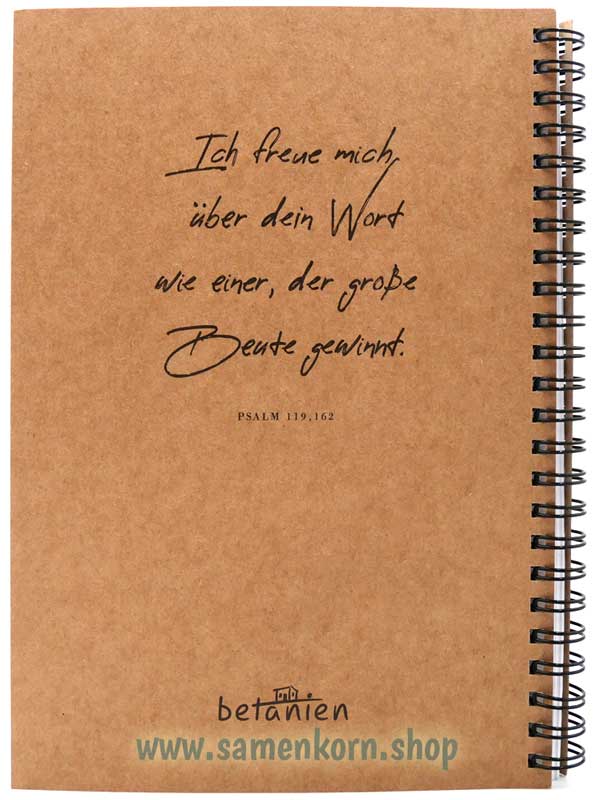 Ich freue mich
über dein Wort
wie einer, der große
Beute gewinnt.
PSALM 119,162
betanien
www.samenkorn.shop